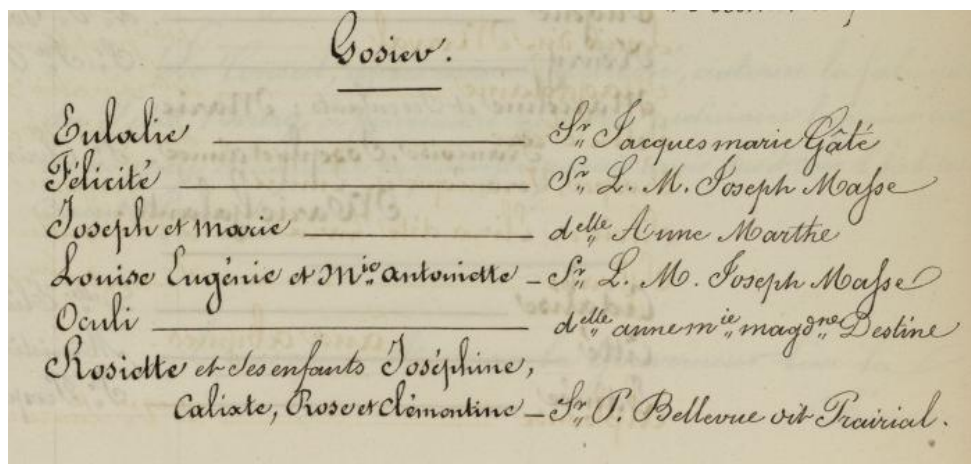 Gosier.
Eulalie — Sr Jacques marie Gâté
Félicité — Sr L. M. Joseph Masse
Joseph et marie — delle Anne Marthe
Louise Eugénie et Mie antoinette — Sr L. M. Joseph Masse
Oculi — delle anne mie magdne Destine
Rosiette et ses enfants Joséphine,
Calixte, Rose et Clémentine — Sr P. Bellevue dit Prairial.